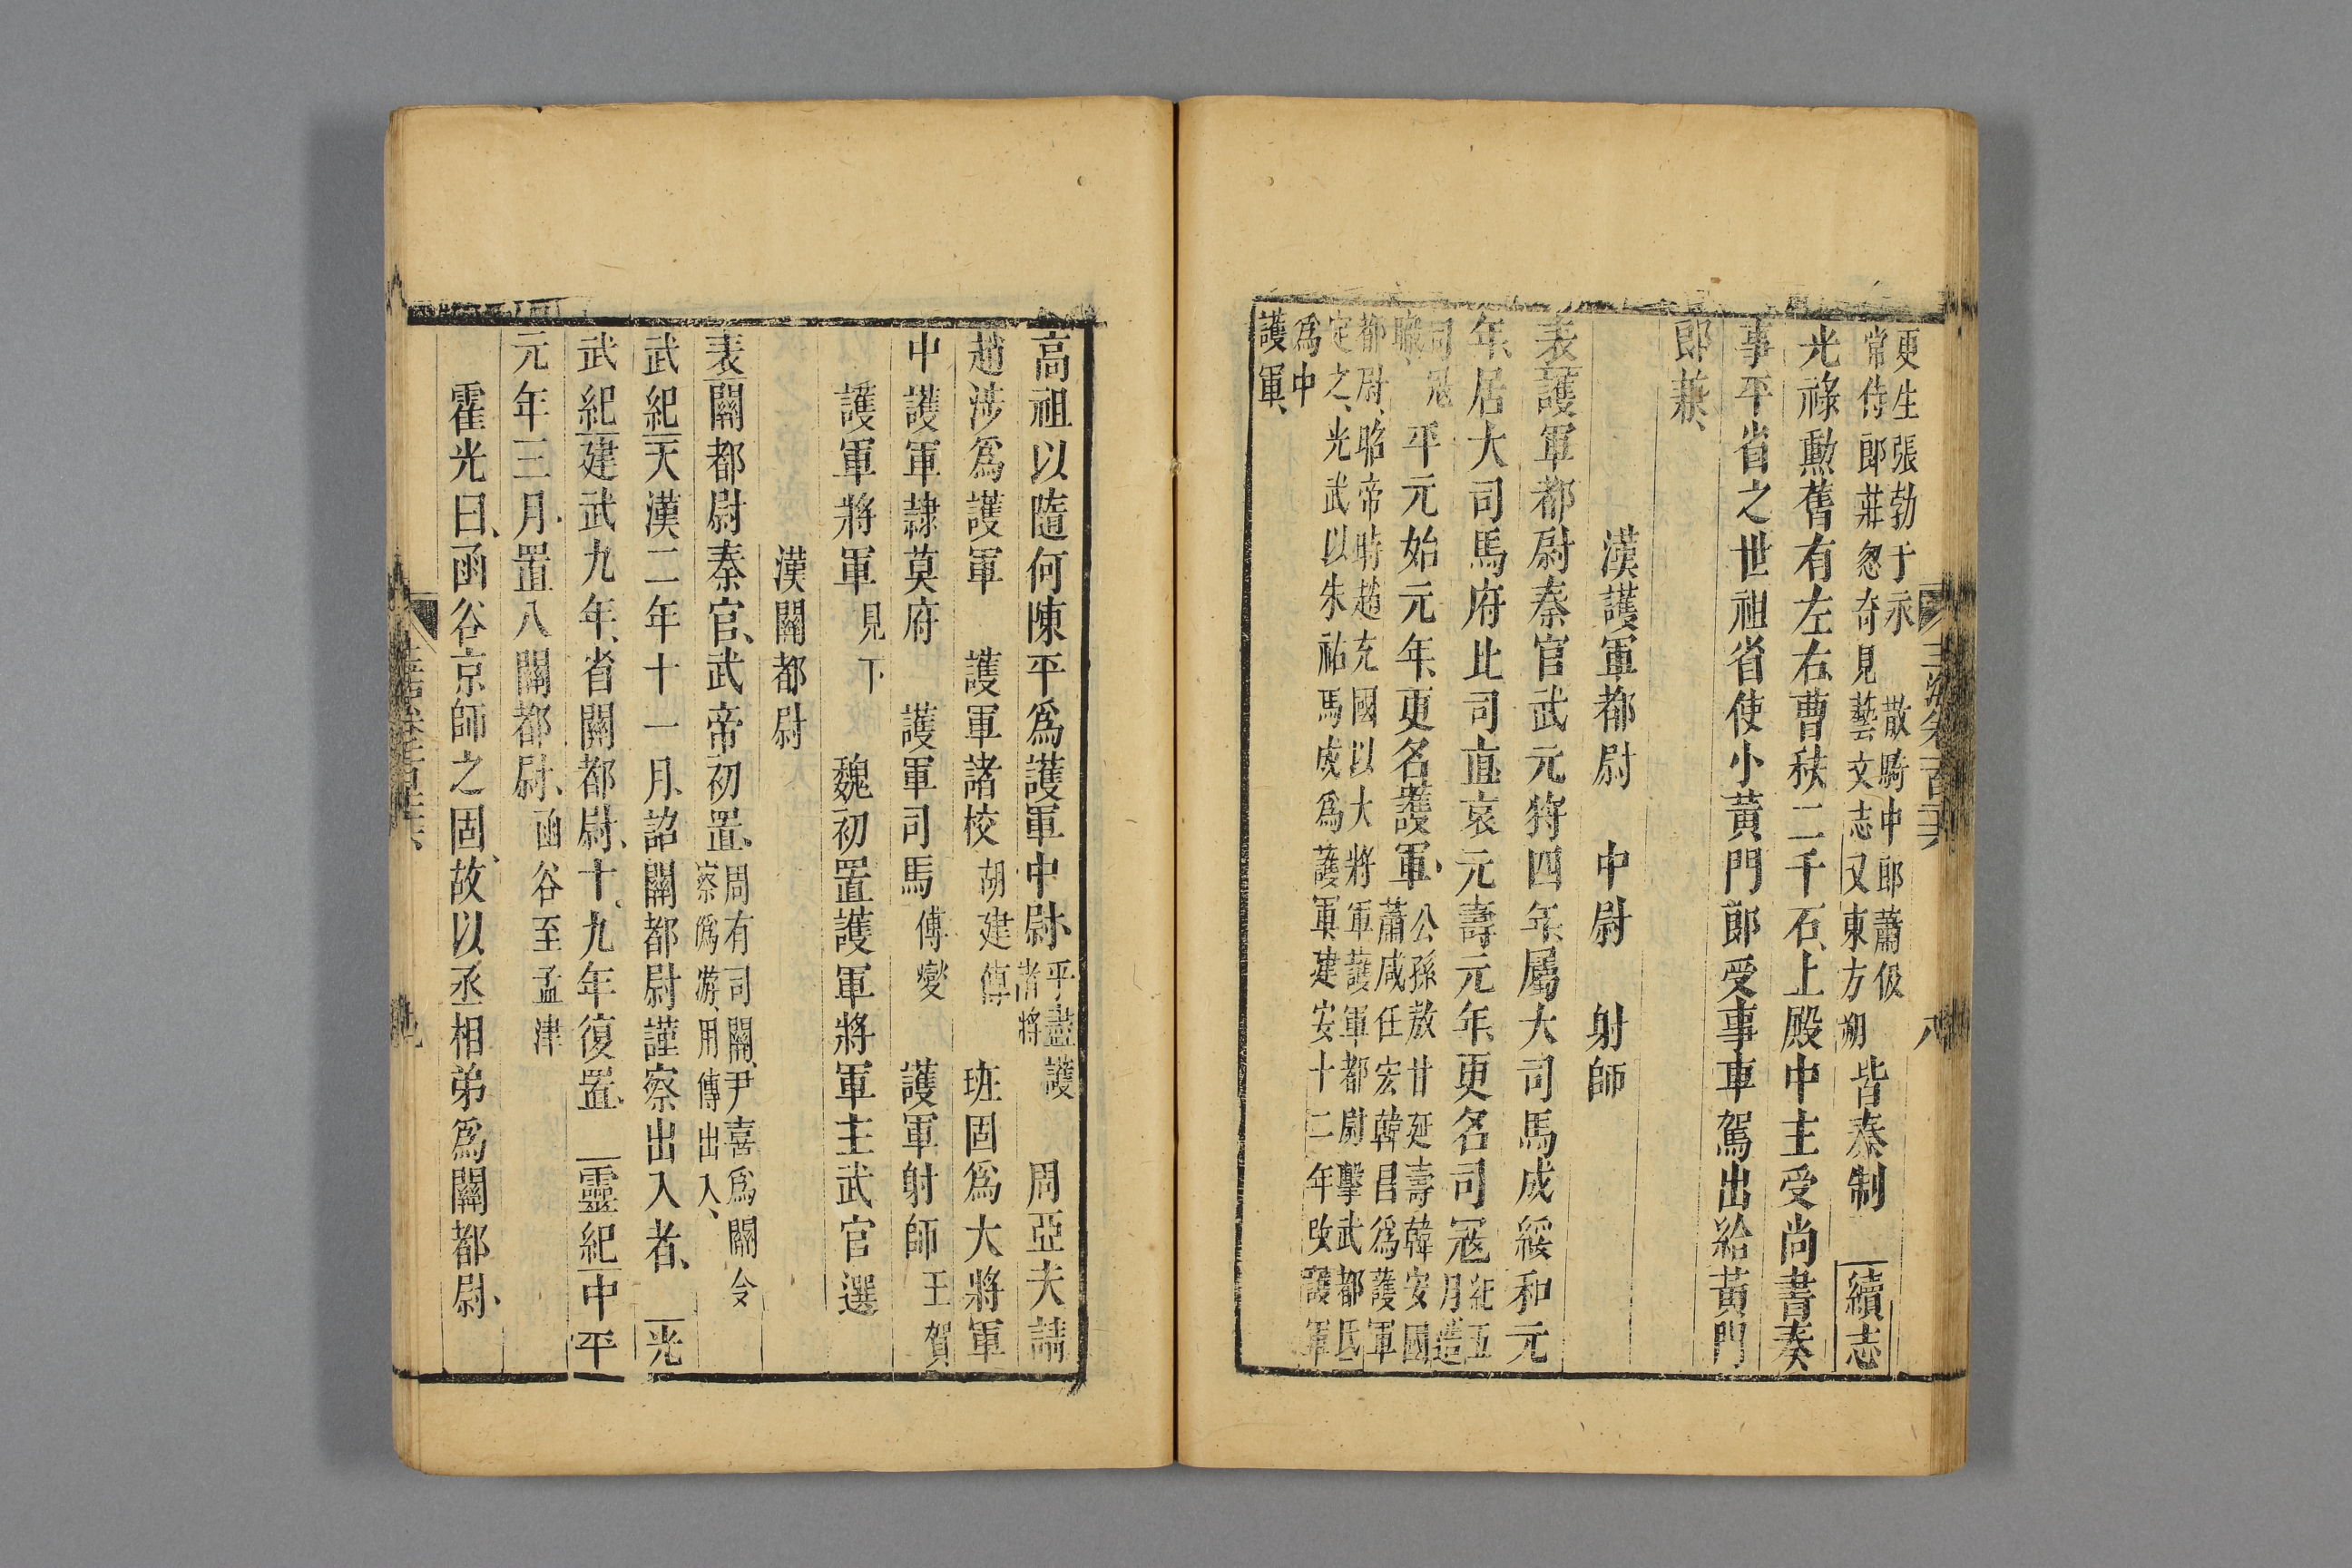 更生張勃于永　散騎中郎蕭伋
常侍郎莊忽奇見藝文志又東方朔
皆秦制　續志
光祿勳舊有左右曹秩二千石上殿中主受尚書奏
事平省之世祖省使小黃門郎受事車駕出給黃門
郎兼
漢護軍都尉　中尉　射師
表護軍都尉秦官武元狩四年屬大司馬成綏和元
年居大司馬府比司直哀元壽元年更名司冦
紀五
月造
司冦
職
平元始元年更名護軍
公孫敖甘延壽韓安國
蕭咸任宏韓昌為護軍
都尉昭帝時趙充國以大將軍護軍都尉擊武都氐
定之光武以朱祐馬成為護軍建安十二年改護軍
為中
護軍
玉海卷一百三六
八
高祖以隨何陳平為護軍中尉
平盡護
諸將
周亞夫請
趙涉為護軍　護軍諸校
胡建傳
班固為大將軍
中護軍隷莫府　護軍司馬
傅燮
護軍射師
王賀
護軍將軍
見下
魏初置護軍將軍主武官選
漢關都尉
表關都尉秦官武帝初置
周有司關尹喜為關令
察偽游用傳出入
武紀天漢二年十一月詔關都尉謹察出入者　光
武紀建武九年省關都尉十九年復置　靈紀中平
元年三月置八關都尉
函谷至孟津
霍光曰函谷京師之固故以丞相弟為關都尉